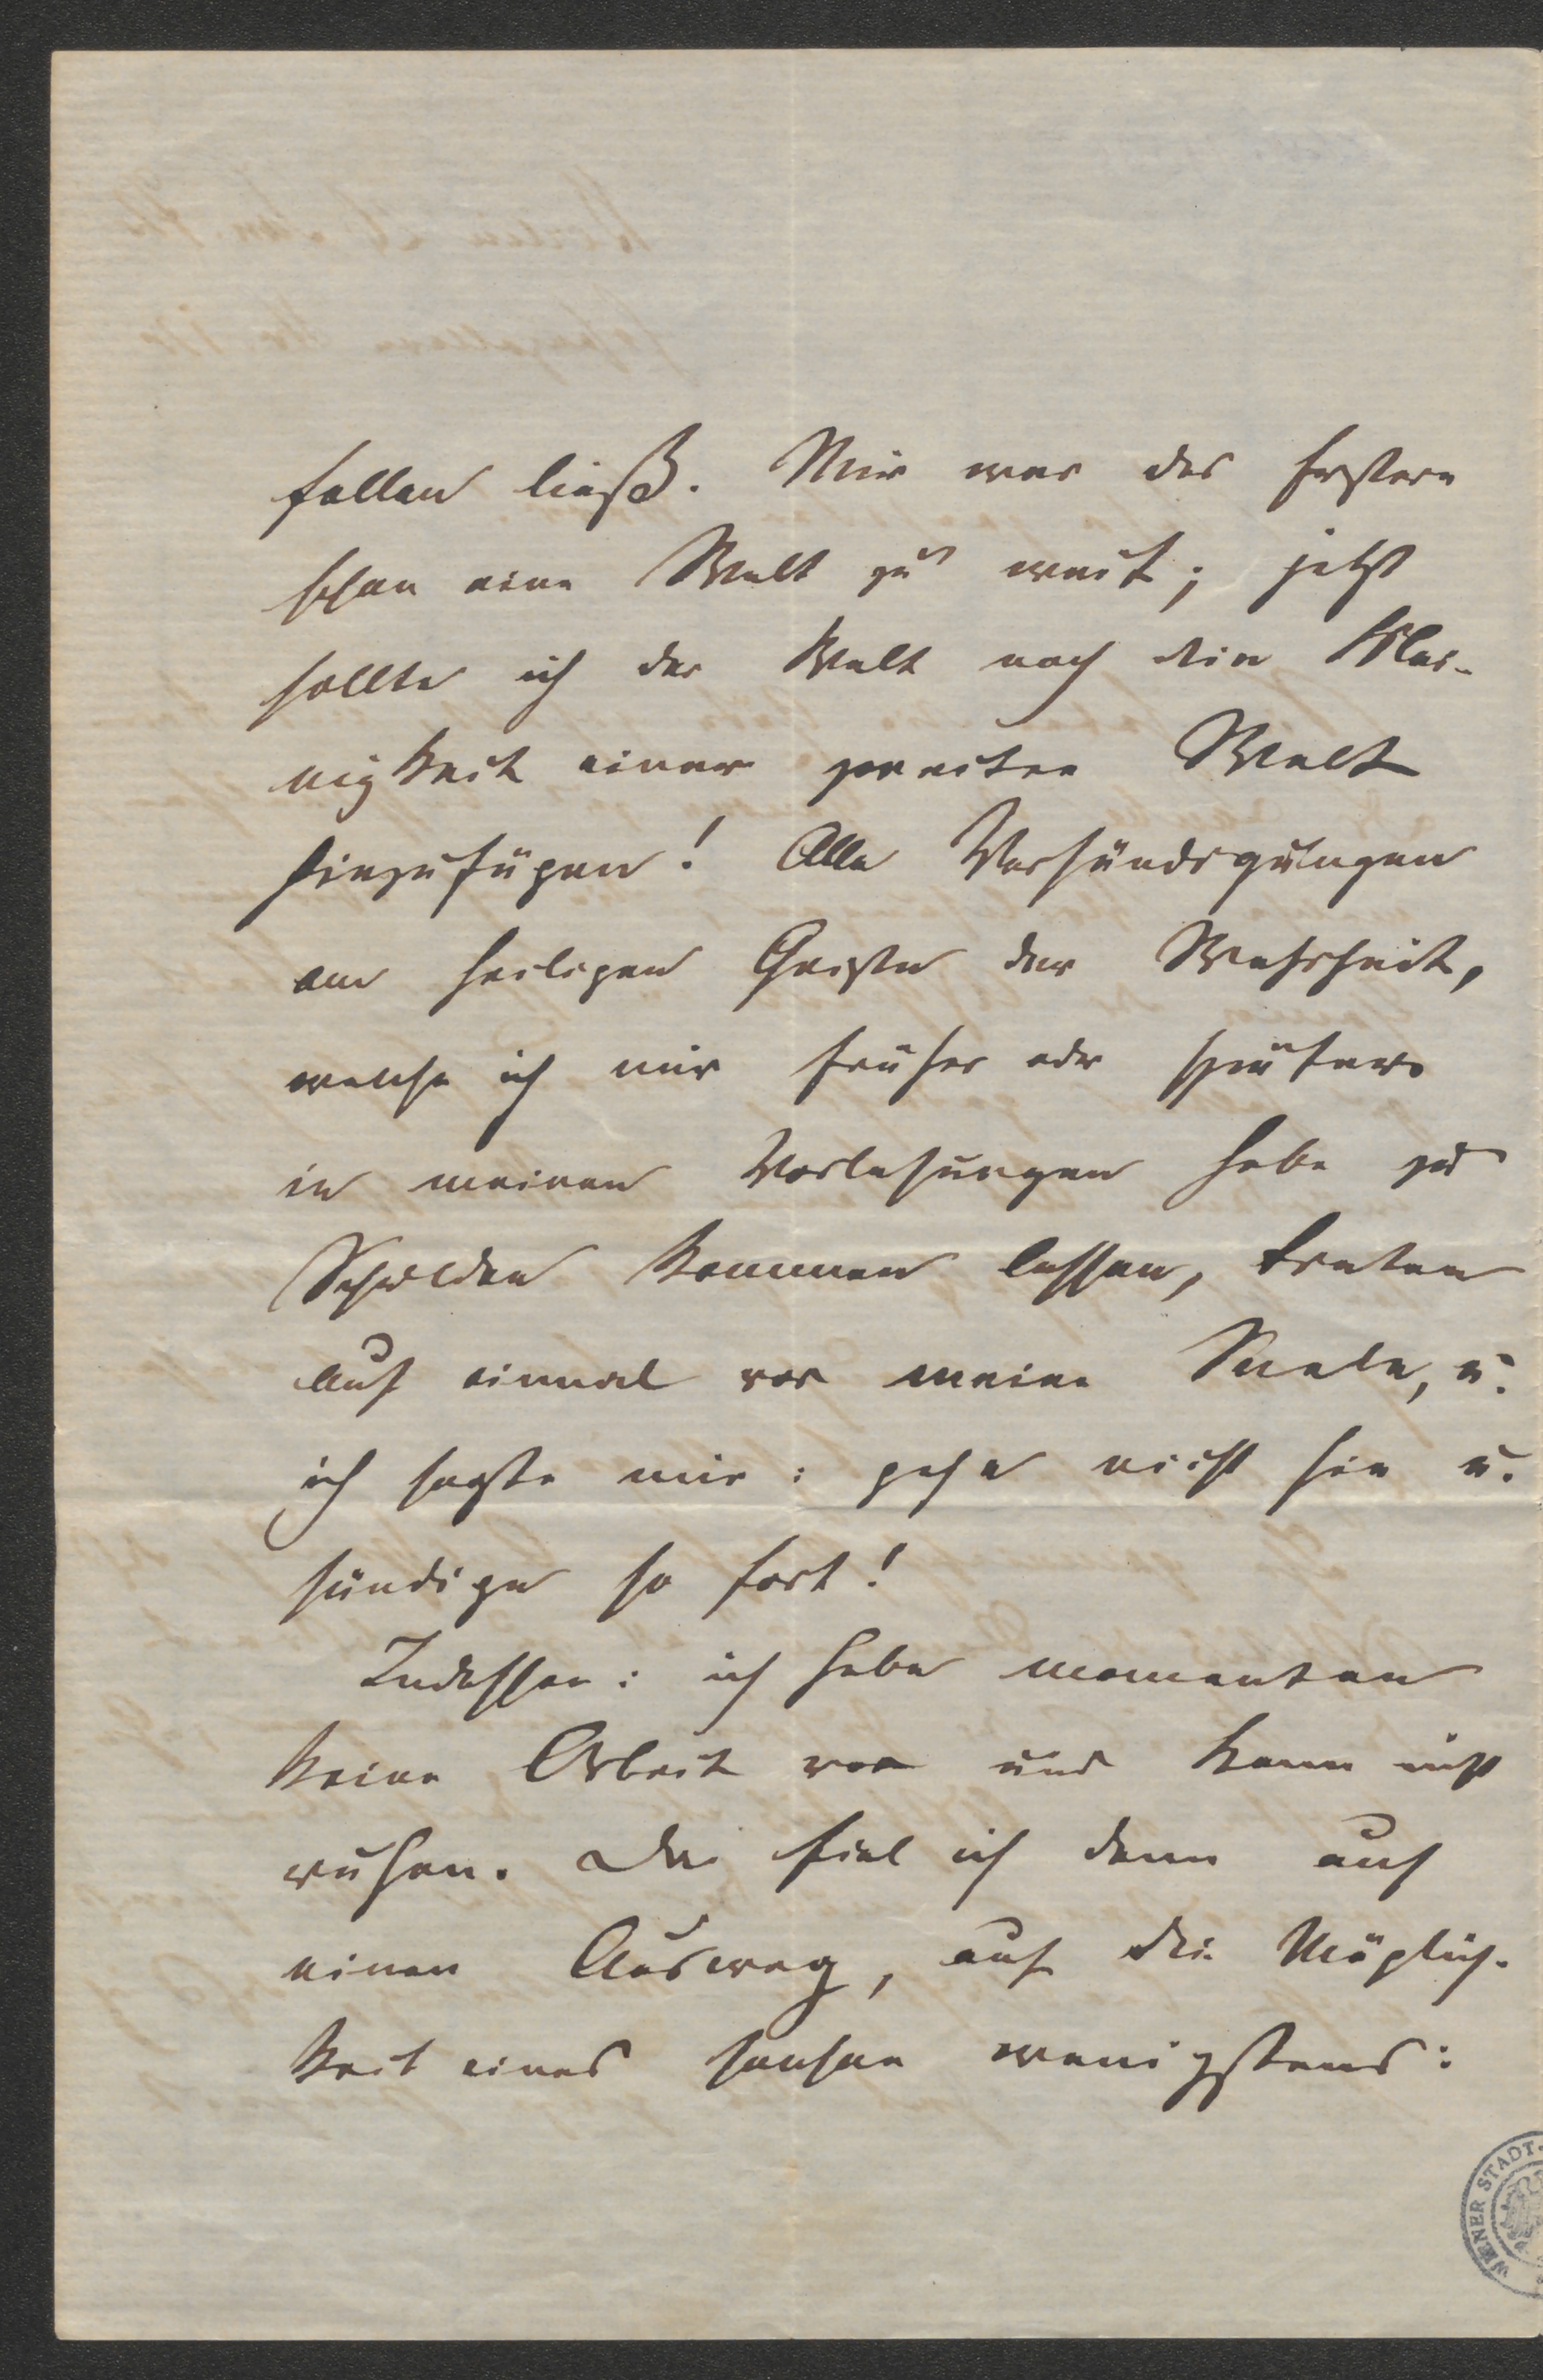 fallen ließ. Mir war das Erstere
schon eine Welt zu weit; jetzt
sollte ich der Welt noch die Klei-
nigkeit einer zweiten Welt
hinzufügen! Alle Versündigungen
am heiligen Geiste der Wahrheit,
welche ich mir früher oder später
in meinen Vorlesungen habe zu
Schulden kommen lassen, traten
auf einmal vor meine Seele, u.
ich sagte mir: gehe nicht hin u.
sündige so fort!
Indessen: ich habe momentan
keine Arbeit vor und kann nicht
ruhen. Da fiel ich denn auf
einen Ausweg, auf die Möglich-
keit eines solchen wenigstens:
WIENER STADT-